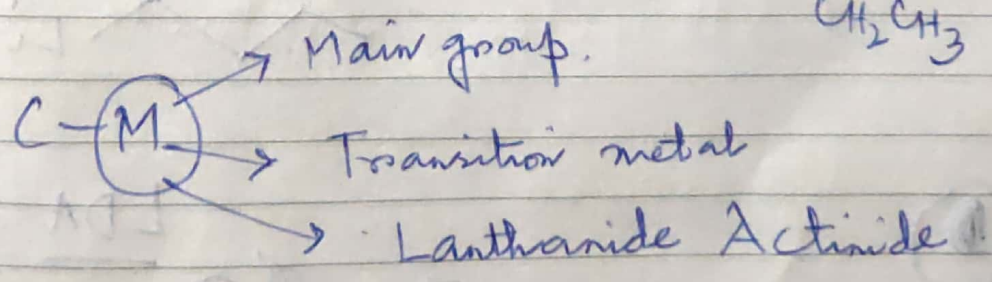 CH2CH3
Main group.
C-M
Transition metal
Lanthanide Actinide